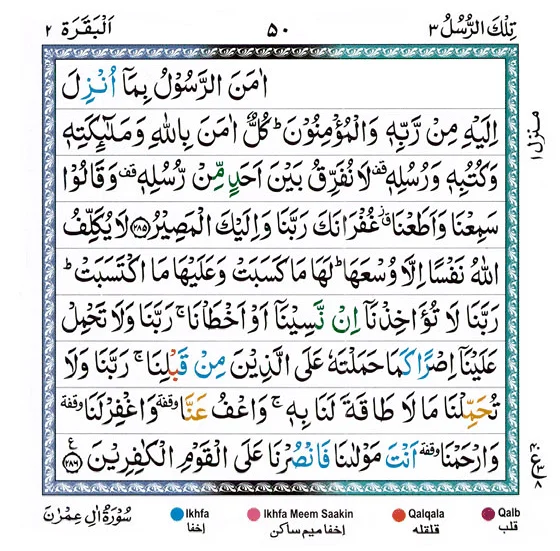 تِلْكَ الرُّسُلُ ٣
٥٠
اَلْبَقَرَة ٢
اٰمَنَ الرَّسُوْلُ بِمَاۤ اُنْزِلَ
اِلَيْهِ مِنْ رَّبِّهٖ وَالْمُؤْمِنُوْنَ ؕ كُلٌّ اٰمَنَ بِاللّٰهِ وَمَلٰٓئِكَتِهٖ
وَكُتُبِهٖ وَرُسُلِهٖ قف لَا نُفَرِّقُ بَيْنَ اَحَدٍ مِّنْ رُّسُلِهٖ قف وَقَالُوْا
سَمِعْنَا وَاَطَعْنَا غُفْرَانَكَ رَبَّنَا وَاِلَيْكَ الْمَصِيْرُ ۝٢٨٥ لَا يُكَلِّفُ
اللّٰهُ نَفْسًا اِلَّا وُسْعَهَا ؕ لَهَا مَا كَسَبَتْ وَعَلَيْهَا مَا اكْتَسَبَتْ ؕ
رَبَّنَا لَا تُؤَاخِذْنَاۤ اِنْ نَّسِيْنَاۤ اَوْ اَخْطَاْنَا ۚ رَبَّنَا وَلَا تَحْمِلْ
عَلَيْنَاۤ اِصْرًا كَمَا حَمَلْتَهٗ عَلَى الَّذِيْنَ مِنْ قَبْلِنَا ۚ رَبَّنَا وَلَا
تُحَمِّلْنَا مَا لَا طَاقَةَ لَنَا بِهٖ ۚ وَاعْفُ عَنَّا وقفة وَاغْفِرْ لَنَا وقفة
وَارْحَمْنَا وقفة اَنْتَ مَوْلٰىنَا فَانْصُرْنَا عَلَى الْقَوْمِ الْكٰفِرِيْنَ ۝٢٨٦ ع
منزل ١
سُوْرَةُ اٰلِ عِمْرٰنَ
Ikhfa
اخفا
Ikhfa Meem Saakin
اخفا میم ساکن
Qalqala
قلقلہ
Qalb
قلب